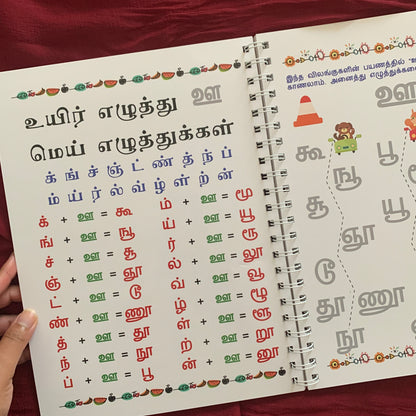 உயிர் எழுத்து ஊ
மெய் எழுத்துக்கள்
க் ங் ச் ஞ் ட் ண் த் ந் ப்
ம் ய் ர் ல் வ் ழ் ள் ற் ன்
க் + ஊ = கூ
ங் + ஊ = ஙூ
ச் + ஊ = சூ
ஞ் + ஊ = ஞூ
ட் + ஊ = டூ
ண் + ஊ = ணூ
த் + ஊ = தூ
ந் + ஊ = நூ
ப் + ஊ = பூ
ம் + ஊ = மூ
ய் + ஊ = யூ
ர் + ஊ = ரூ
ல் + ஊ = லூ
வ் + ஊ = வூ
ழ் + ஊ = ழூ
ள் + ஊ = ளூ
ற் + ஊ = றூ
ன் + ஊ = னூ
இந்த விலங்குகளின் பயணத்தில்
காணலாம். அனைத்து
ஊ
கூ பூ
ஙூ
சூ பூ
ஞூ
டூ
தூ ணூ
நூ